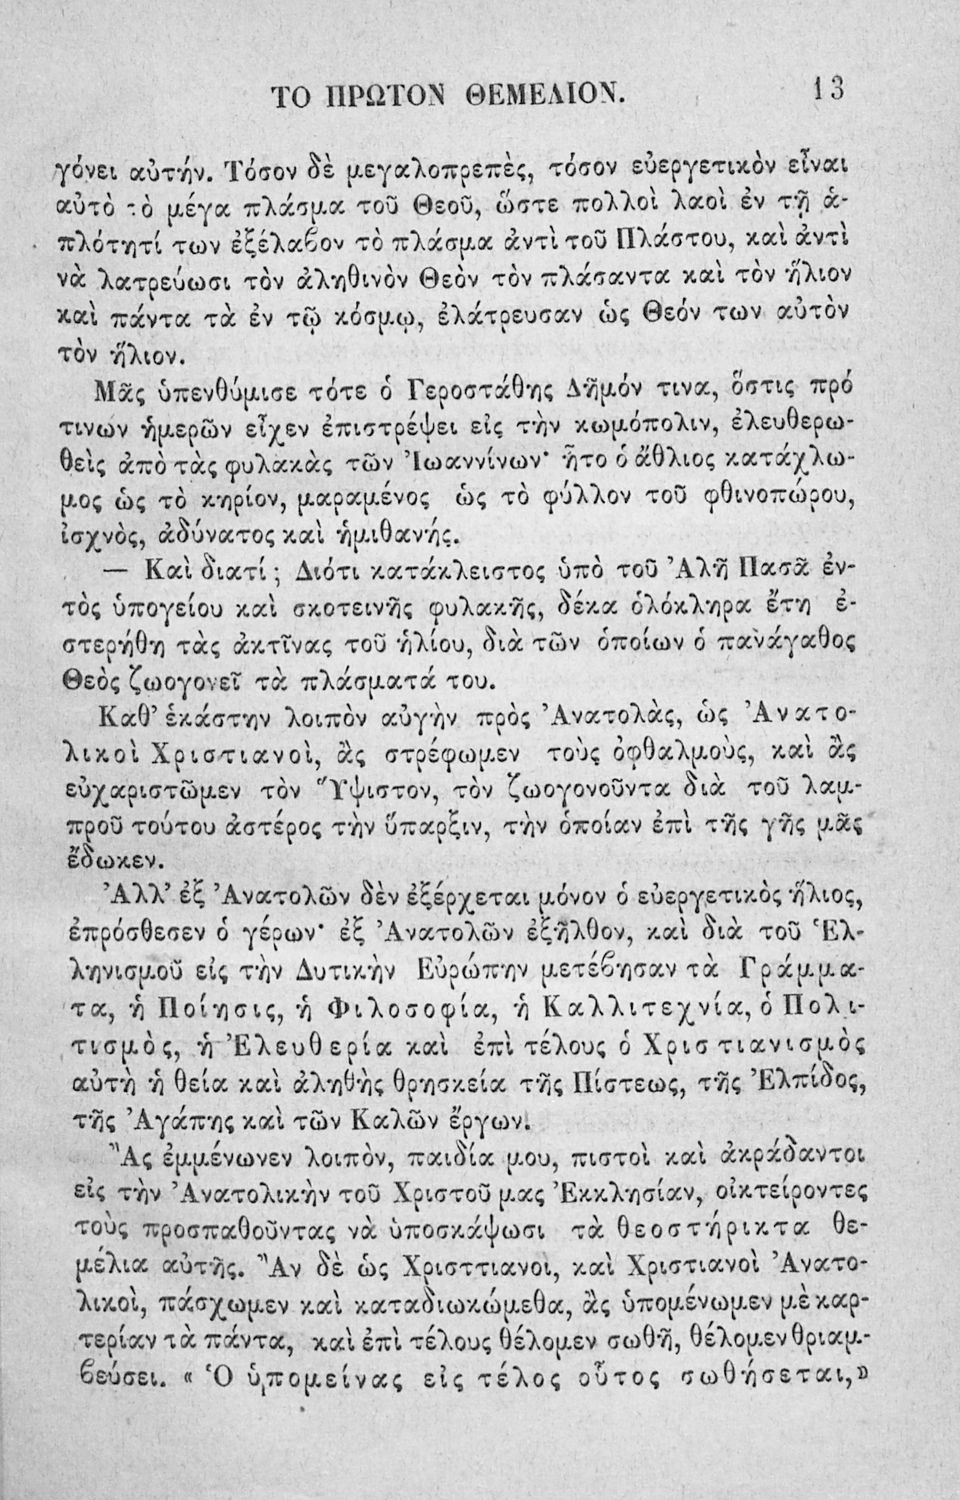 ΤΟ ΠΡΩΤΟΝ ΘΕΜΕΛΙΟΝ. 13
γόνει αὐτήν. Τόσον δὲ μεγαλοπρεπὲς, τόσον εὐεργετικὸν εἶναι
αὐτὸ τὸ μέγα πλάσμα τοῦ Θεοῦ, ὥστε πολλοὶ λαοὶ ἐν τῇ ἁ-
πλότητί των ἐξέλαβον τὸ πλάσμα ἀντὶ τοῦ Πλάστου, καὶ ἀντὶ
νὰ λατρεύωσι τὸν ἀληθινὸν Θεὸν τὸν πλάσαντα καὶ τὸν ἥλιον
καὶ πάντα τὰ ἐν τῷ κόσμῳ, ἐλάτρευσαν ὡς Θεόν των αὐτὸν
τὸν ἥλιον.
Μᾶς ὑπενθύμισε τότε ὁ Γεροστάθης Δῆμόν τινα, ὅστις πρό
τινων ἡμερῶν εἶχεν ἐπιστρέψει εἰς τὴν κωμόπολιν, ἐλευθερω-
θεὶς ἀπὸ τὰς φυλακὰς τῶν Ἰωαννίνων· ἦτο ὁ ἄθλιος κατάχλω-
μος ὡς τὸ κηρίον, μαραμένος ὡς τὸ φύλλον τοῦ φθινοπώρου,
ἰσχνὸς, ἀδύνατος καὶ ἡμιθανής.
— Καὶ διατί; Διότι κατάκλειστος ὑπὸ τοῦ Ἀλῆ Πασᾶ ἐν-
τὸς ὑπογείου καὶ σκοτεινῆς φυλακῆς, δέκα ὁλόκληρα ἔτη ἐ-
στερήθη τὰς ἀκτῖνας τοῦ ἡλίου, διὰ τῶν ὁποίων ὁ πανάγαθος
Θεὸς ζωογονεῖ τὰ πλάσματά του.
Καθ’ ἑκάστην λοιπὸν αὐγὴν πρὸς Ἀνατολὰς, ὡς Ἀνατο-
λικοὶ Χριστιανοὶ, ἂς στρέφωμεν τοὺς ὀφθαλμοὺς, καὶ ἂς
εὐχαριστῶμεν τὸν Ὕψιστον, τὸν ζωογονοῦντα διὰ τοῦ λαμ-
προῦ τούτου ἀστέρος τὴν ὕπαρξιν, τὴν ὁποίαν ἐπὶ τῆς γῆς μᾶς
ἔδωκεν.
Ἀλλ’ ἐξ Ἀνατολῶν δὲν ἐξέρχεται μόνον ὁ εὐεργετικὸς ἥλιος,
ἐπρόσθεσεν ὁ γέρων· ἐξ Ἀνατολῶν ἐξῆλθον, καὶ διὰ τοῦ Ἑλ-
ληνισμοῦ εἰς τὴν Δυτικὴν Εὐρώπην μετέβησαν τὰ Γράμμα-
τα, ἡ Ποίησις, ἡ Φιλοσοφία, ἡ Καλλιτεχνία, ὁ Πολι-
τισμὸς, ἡ Ἐλευθερία καὶ ἐπὶ τέλους ὁ Χριστιανισμὸς
αὐτὴ ἡ θεία καὶ ἀληθὴς θρησκεία τῆς Πίστεως, τῆς Ἐλπίδος,
τῆς Ἀγάπης καὶ τῶν Καλῶν ἔργων.
Ἂς ἐμμένωνεν λοιπὸν, παιδία μου, πιστοὶ καὶ ἀκράδαντοι
εἰς τὴν Ἀνατολικὴν τοῦ Χριστοῦ μας Ἐκκλησίαν, οἰκτείροντες
τοὺς προσπαθοῦντας νὰ ὑποσκάψωσι τὰ θεοστήρικτα θε-
μέλια αὐτῆς. Ἂν δὲ ὡς Χρισττιανοι, καὶ Χριστιανοὶ Ἀνατο-
λικοὶ, πάσχωμεν καὶ καταδιωκώμεθα, ἂς ὑπομένωμεν μὲ καρ-
τερίαν τὰ πάντα, καὶ ἐπὶ τέλους θέλομεν σωθῆ, θέλομεν θριαμ-
βεύσει. « Ὁ ὑπομείνας εἰς τέλος οὗτος σωθήσεται,»